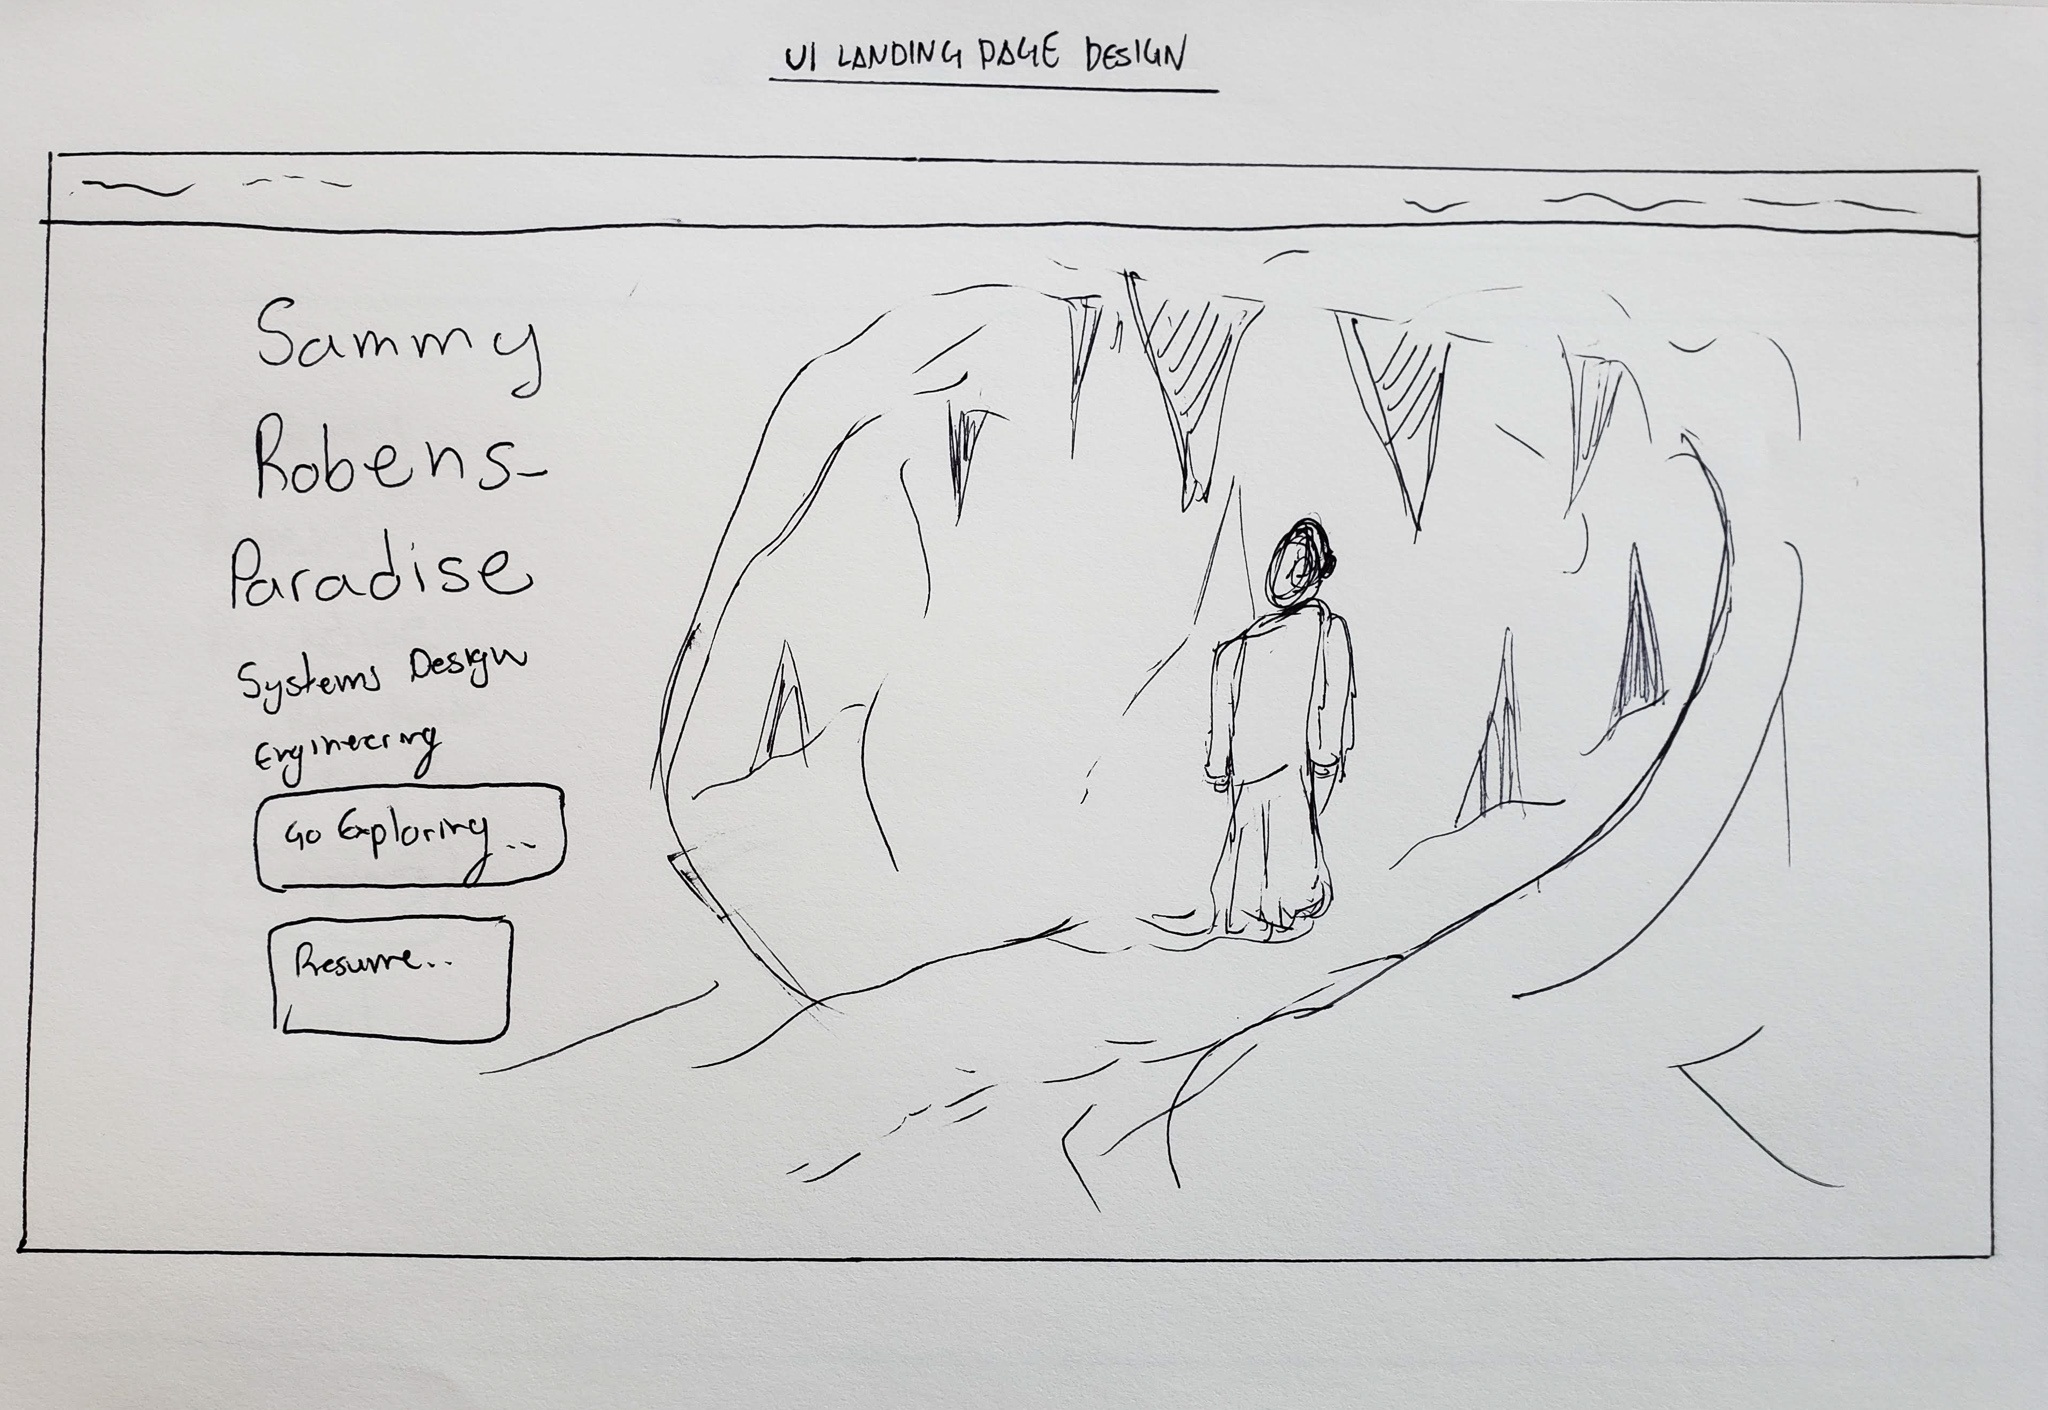 UI LANDING PAGE DESIGN
Sammy
Robens-
Paradise
Systems Design
Engineering
Go Exploring...
Resume...